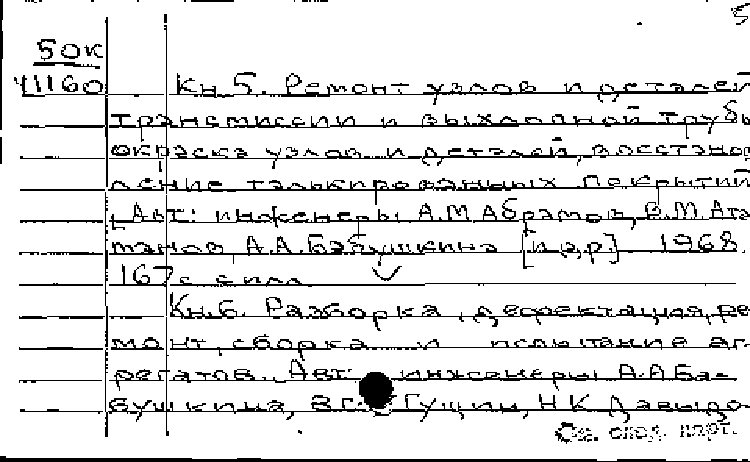 5
50к
41160
Кн. 5. Ремонт узлов и деталей
трансмиссии и выхлопной трубы
окраска узлов и деталей, восстанов
ление талькированных покрытий
[Авт: инженеры А.М. Абрамов, В.М. Ата
манов А.А. Бабушкина [и др] 1968.
167 с с илл
Кн. 6. Разборка, дефектация, ре
монт, сборка и испытание аг-
регатов. Авт: инженеры А.А. Ба-
бушкина, В.Г. Гущин, Н.К. Давыдо-
См. след. карт.